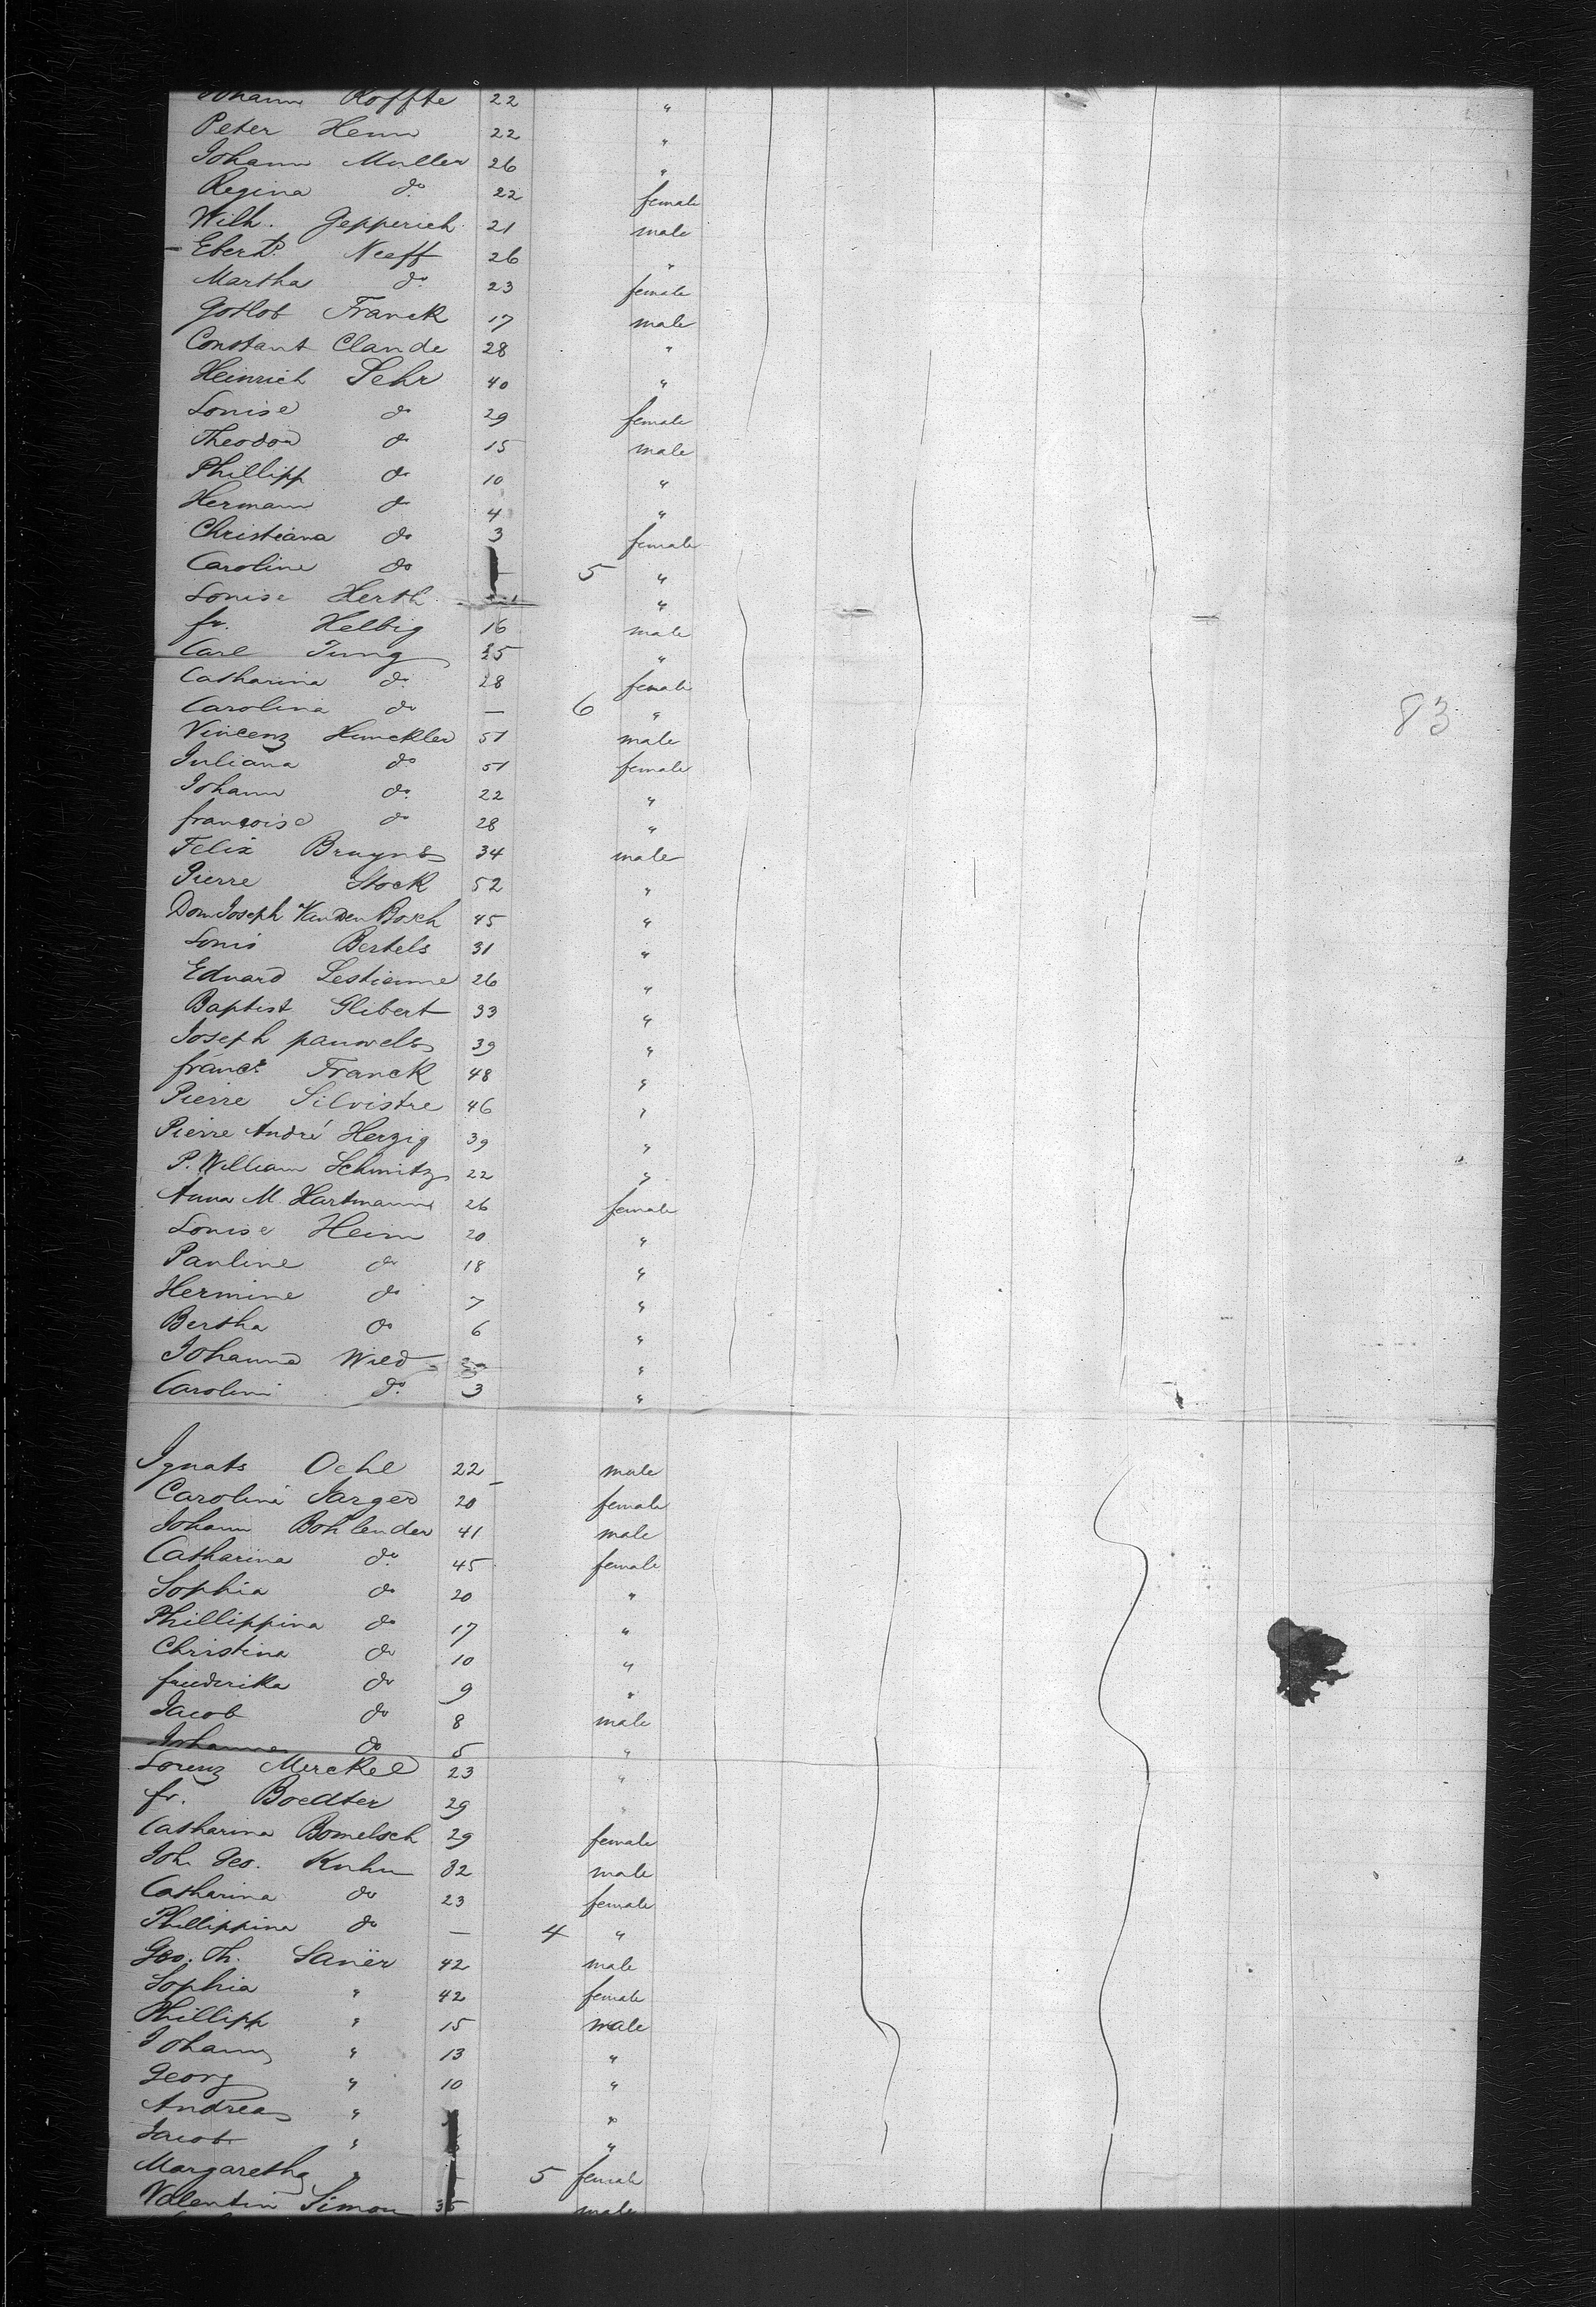 Johann Roffte 22 "
Peter Henn 22 "
Johann Muller 26 "
Regina do 22 female
Wilh. Gepperich 21 male
Eberhd Neeff 26 "
Martha do 23 female
Gotlob Franck 17 male
Constant Claude 28 "
Heinrich Sehr 40 "
Louise do 29 female
Theodor do 15 male
Phillipp do 10 "
Hermann do 4 "
Christiana do 3 female
Caroline do 5 "
Louise Herth "
fr. Helbig 16 male
Carl Jung 25 "
Catharina do 28 female
Carolina do — 6 "
83
Vincenz Hunckler 51 male
Juliana do 51 female
Johann do 22 "
françoise do 28 "
Felix Bruyns 34 male
Pierre Stock 52 "
Dom Joseph Van Den Bosch 45 "
Louis Bertels 31 "
Eduard Lestienne 26 "
Baptist Glibert 33 "
Joseph pauwels 39 "
francs Franck 48 "
Pierre Silvistre 46 "
Pierre André Herzig 39 "
P. William Schmitz 22 "
Anna M. Hartmann 26 female
Louise Heim 20 "
Pauline do 18 "
Hermine do 7 "
Bertha do 6 "
Johanna Wild "
Carolini do 3 "
Ignats Oehl 22 male
Carolina Jarger 20 female
Johann Bohlender 41 male
Catharina do 45 female
Sophia do 20 "
Phillippina do 17 "
Christina do 10 "
friederika do 9 "
Jacob do 8 male
Johannes do 5 "
Lorenz Merckel 23 "
fr. Boedter 29 "
Catharina Bomelsch 29 female
Joh. Geo. Kuhn 32 male
Catharina do 23 female
Phillippina do — 4 "
Geo. Th. Sauër 42 male
Sophia " 42 female
Phillipp " 15 male
Johann " 13 "
Georg " 10 "
Andreas " "
Jacob " "
Margaretha " 5 female
Valentin Simon 35 male